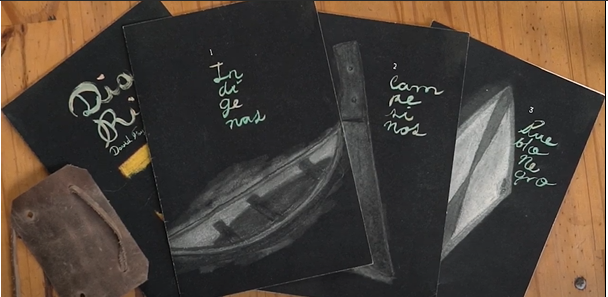 Dia
Ri
David
1
In
dí
ge
nas
2
Cam
pe
si
nos
3
Pue
blo
Ne
gro